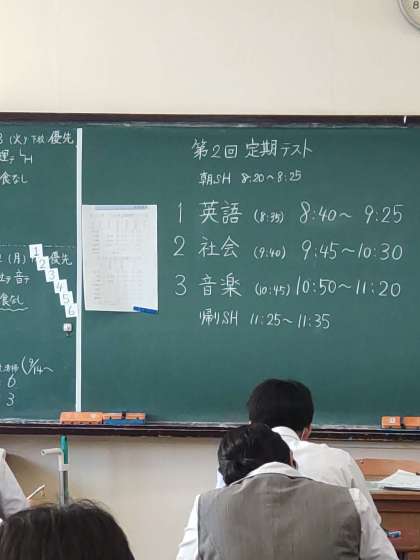 (火) 下校 優先
食なし
(月) 優先
食なし
(9/14〜
6
3
1
2
3
4
5
6
第2回 定期テスト
朝SH 8:20〜8:25
1 英語 (8:35) 8:40〜 9:25
2 社会 (9:40) 9:45〜10:30
3 音楽 (10:45) 10:50〜11:20
帰りSH 11:25〜11:35